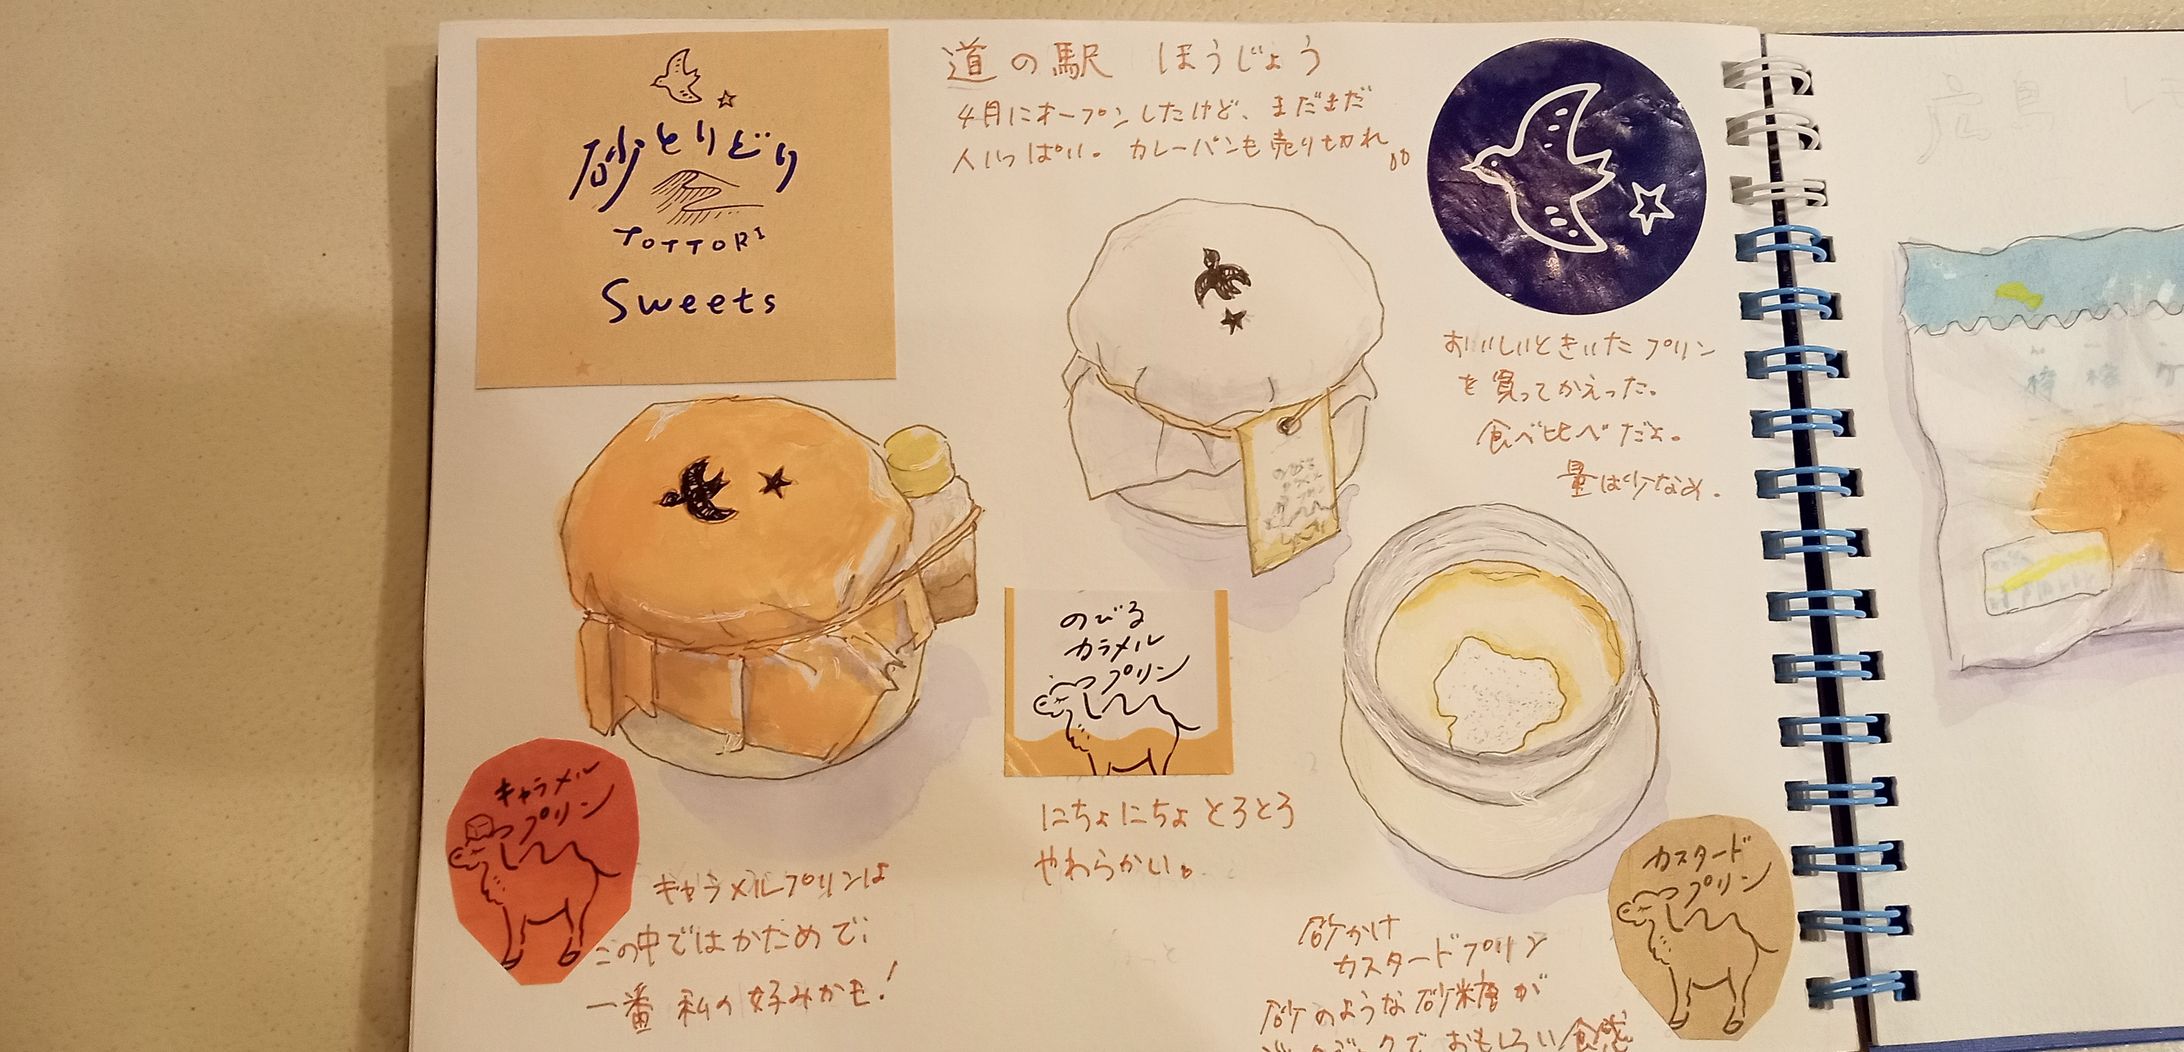 砂とりどり
TOTTORI
Sweets
道の駅 ほうじょう
4月にオープンしたけど、まだまだ
人いっぱい。カレーパンも売り切れ
おいしいときいたプリン
を買ってかえった。
食べ比べだよ。
量は少なめ。
のびる
カラメル
プリン
にちょにちょとろとろ
やわらかい。
キャラメル
プリン
キャラメルプリンは
この中ではかためで、
一番 私の好みかも!
カスタード
プリン
砂かけ
カスタードプリン
砂のような砂糖が
おもしろい食感